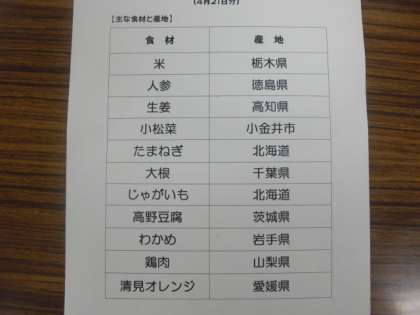 (4月21日分)
【主な食材と産地】
食材 産地
米 栃木県
人参 徳島県
生姜 高知県
小松菜 小金井市
たまねぎ 北海道
大根 千葉県
じゃがいも 北海道
高野豆腐 茨城県
わかめ 岩手県
鶏肉 山梨県
清見オレンジ 愛媛県